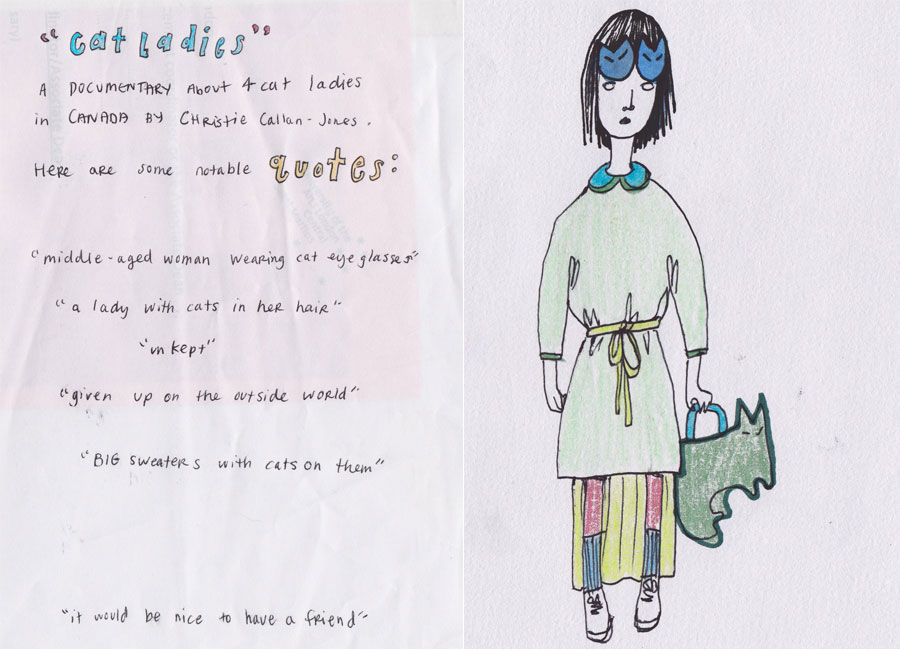 "cat ladies"
A DOCUMENTARY About 4 cat ladies
in CANADA BY CHRistie Callan-Jones.
HeRe aRe some notable quotes:
"middle-aged woman wearing cat eye glasses"
"a lady with cats in her hair"
"un kept"
"given up on the outside world"
"BIG sweaters with cats on them"
"it would be nice to have a friend"